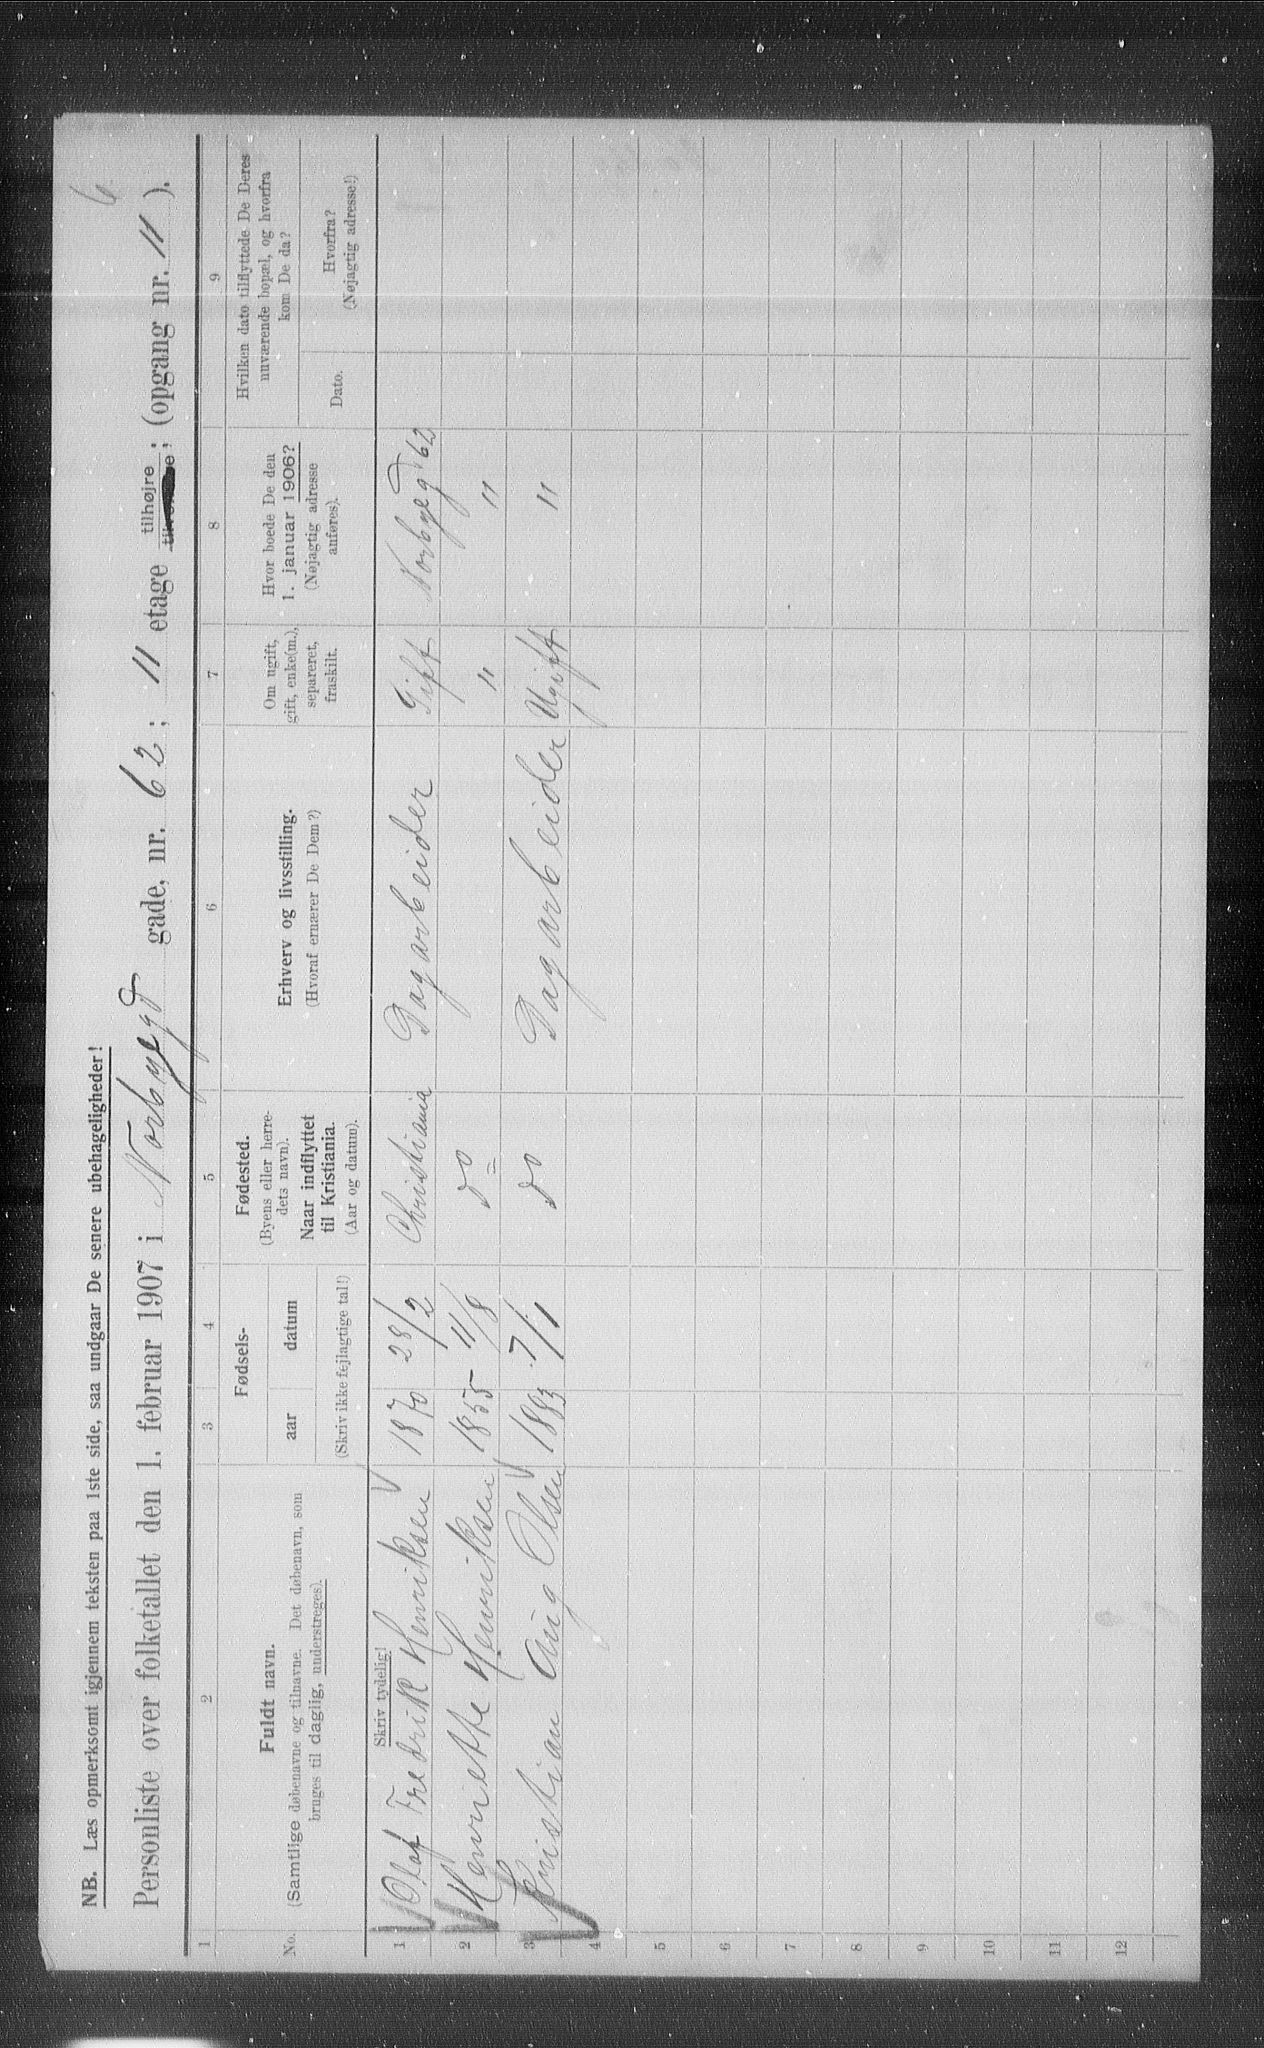 6.
NB. Læs opmerksomt igjennem teksten paa 1ste side, saa undgaar De senere ubehageligheder!
Personliste over folketallet den 1. februar 1907 i Norbyegd gade, nr. 62; 11 etage tilhøjre; (opgang nr. 11).
1 2 3 4 5 6 7 8 9
No.
Fuldt navn.
(Samtlige døbenavne og tilnavne. Det døbenavn, som
bruges til daglig, understreges).
Fødsels-
aar datum
(Skriv ikke fejlagtige tal!)
Fødested.
(Byens eller herre-
dets navn).
Naar indflyttet
til Kristiania.
(Aar og datum).
Erhverv og livsstilling.
(Hvoraf ernærer De Dem?)
Om ugift,
gift, enke(m.),
separeret,
fraskilt.
Hvor boede De den
1. januar 1906?
(Nøjagtig adresse
anføres).
Hvilken dato tilflyttede De Deres
nuværende bopæl, og hvorfra
kom De da?
Dato.
Hvorfra?
(Nøjagtig adresse!)
Skriv tydelig!
1 Olaf Fredrik Henriksen 1870 28/2 Christiania Dagarbeider Gift Norbyegd 62
2 Henriette Henriksen 1855 11/8 do " "
3 Kristian Aug Olsen 1883 7/1 do Dagarbeider Ugift "
4
5
6
7
8
9
10
11
12